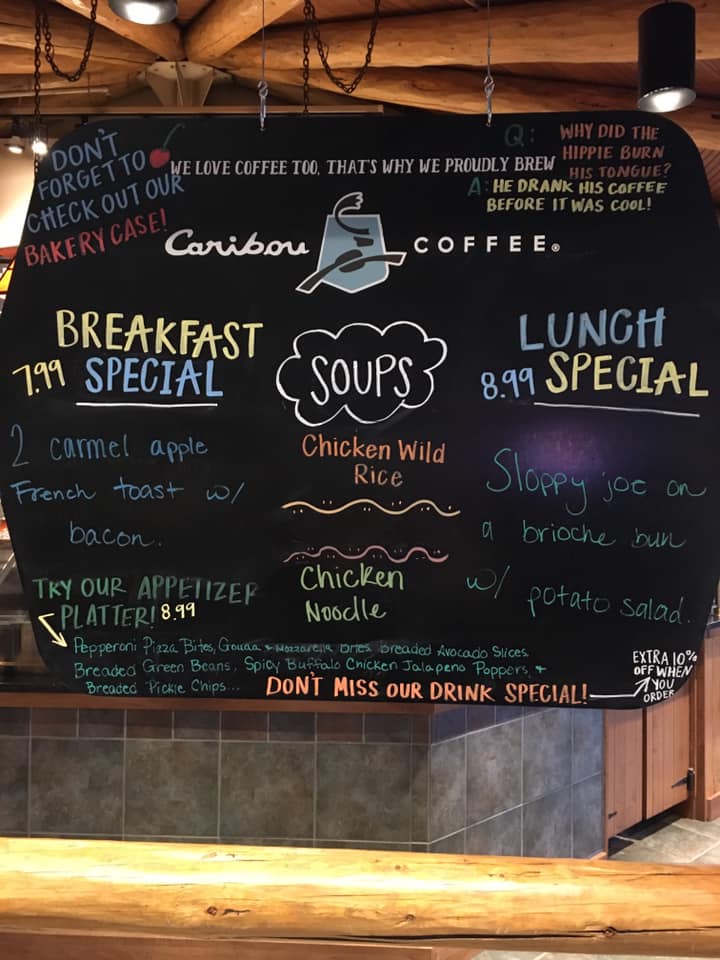 DON'T
FORGET TO
CHECK OUT OUR
BAKERY CASE!
WE LOVE COFFEE TOO, THAT'S WHY WE PROUDLY BREW
Q: WHY DID THE
HIPPIE BURN
HIS TONGUE?
A: HE DRANK HIS COFFEE
BEFORE IT WAS COOL!
Caribou COFFEE®
BREAKFAST
7.99 SPECIAL
2 carmel apple
French toast w/
bacon.
SOUPS
Chicken Wild
Rice
Chicken
Noodle
LUNCH
8.99 SPECIAL
Sloppy joe on
a brioche bun
w/ potato salad.
TRY OUR APPETIZER
PLATTER! 8.99
Pepperoni Pizza Bites, Gouda + Mozzarella Bites Breaded Avocado Slices
Breaded Green Beans, Spicy Buffalo Chicken Jalapeno Poppers, +
Breaded Pickle Chips...
DON'T MISS OUR DRINK SPECIAL!
EXTRA 10%
OFF WHEN
YOU
ORDER